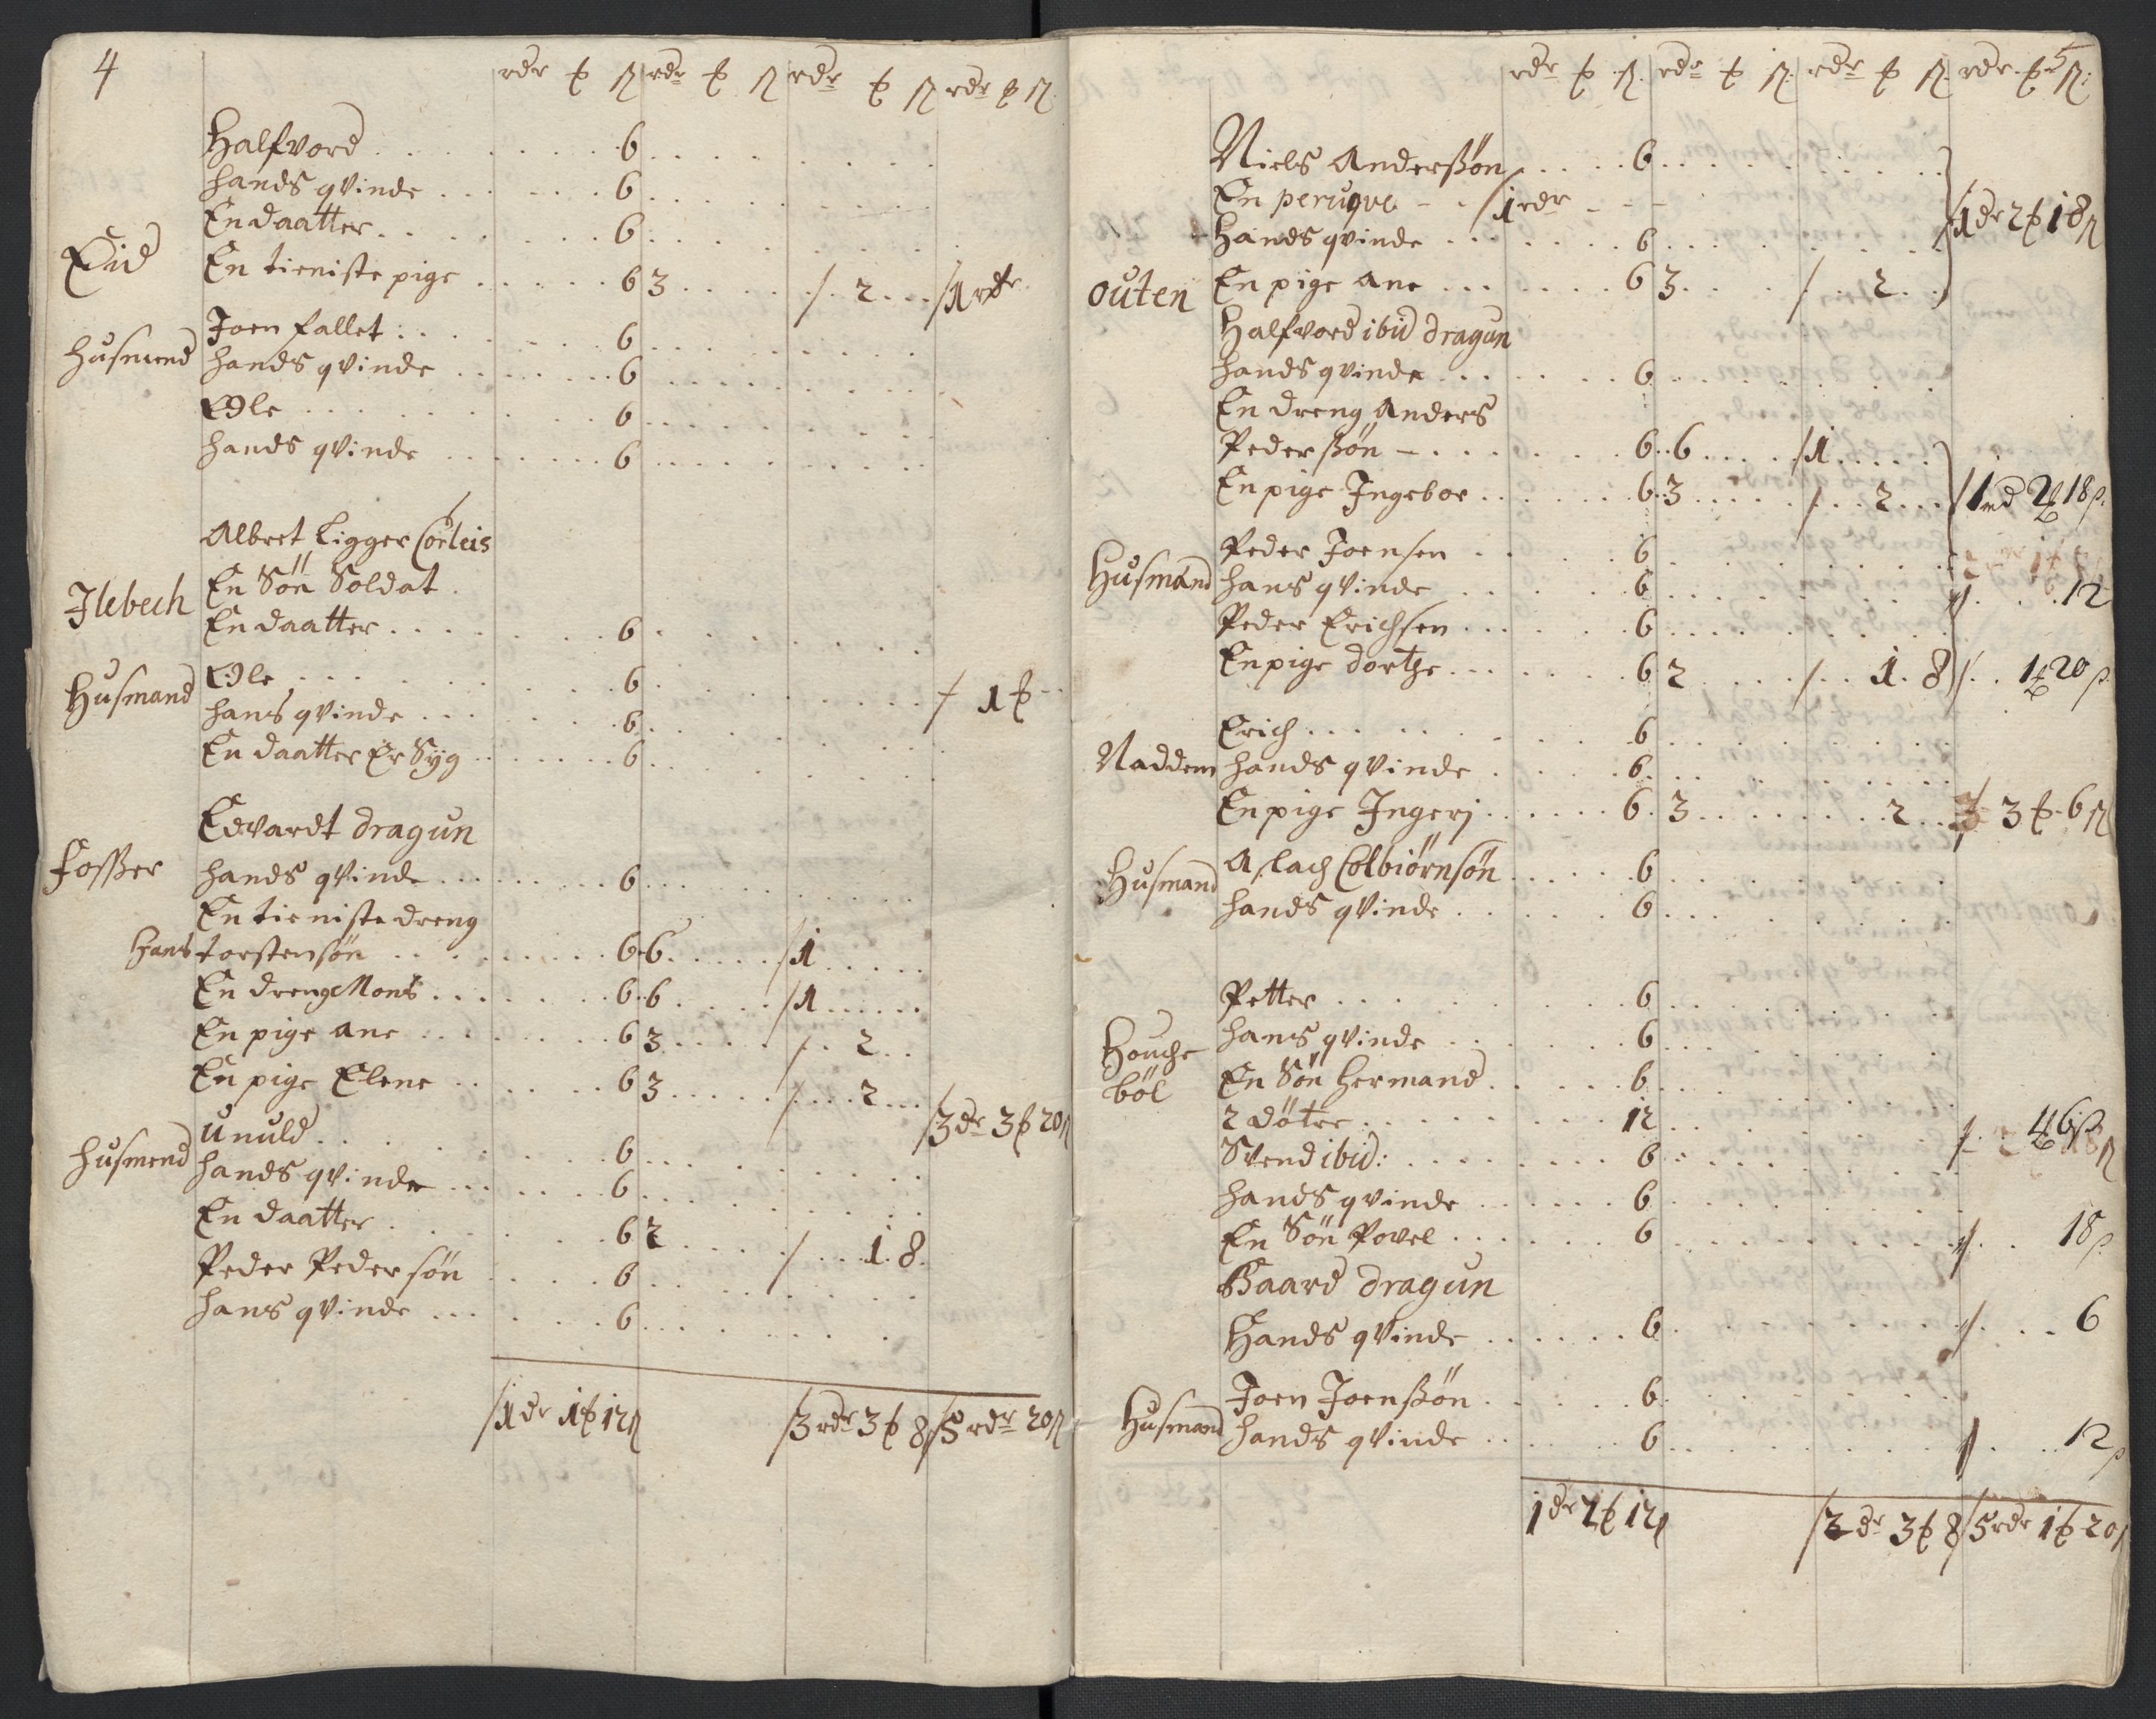 4 rdr ₺ ß rdr ₺ ß rdr ₺ ß rdr ₺ ß
Halfvord 6
hands qvinde 6
En daatter 6
Eid En tieniste pige 6 3 / 2 /1 rdr
Joen fallet 6
husmend hands qvinde 6
Ole 6
hands qvinde 6
Albret Ligger
En Sön Soldat
Ilebech En daatter 6
Ole 6 / 1 ₺
Husmand hans qvinde 6
En daatter Er Syg 6
Edvardt dragun
Fosser hands qvinde 6
En tieniste dreng
Hans torstensön 6 6 /1
En dreng Mons 6 6 /1
En pige ane 6 3 / 2
En pige Elene 6 3 / 2 /3 dr 3 ₺ 20 ß
Unuld 6
husmend hands qvinde 6
En daatter 6 2 / 1 8
Peder Pedersön 6
hans qvinde 6
/1 dr 1 ₺ 12 ß /3 rdr 3 ₺ 8 /5 rdr 20 ß
5
rdr ₺ ß rdr ₺ ß rdr ₺ ß rdr ₺ ß
Niels Anderssön 6
En peruqve /1 rdr /1 dr 2 ₺ 18 ß
hands qvinde 6
outen En pige ane 6 3 / 2
Halfvord ibid dragun
hands qvinde 6
En dreng Anders
Pederssön 6 6 /1
En pige Ingebor 6 3 / 2 /1 rd 2 ₺ 18 ß
Peder Joensen 6
Husmand hans qvinde 6 / 12
Peder Erichsen 6
En pige dorthe 6 2 / 1 8 / 1 ₺ 20 ß
Erich 6
Naddem hands qvinde 6
En pige Ingerj 6 3 2 3 ₺ 6 ß
Aslach Colbiørnsön 6
Husmand hands qvinde 6
Petter 6
Houche hans qvinde 6
böl En Sön Hermand 6
2 døtre 12
Svend ibid: 6 / 4 ₺ 6 ß
hands qvinde 6
En Sön Povel 6 / 18 ß
Baard dragun
Hands qvinde 6 / 6
Joen Joenssön 6
Husmand hands qvinde 6 / 12 ß
1 dr 2 ₺ 12 ß /2 dr 3 ₺ 8 /5 rdr 1 ₺ 20 ß